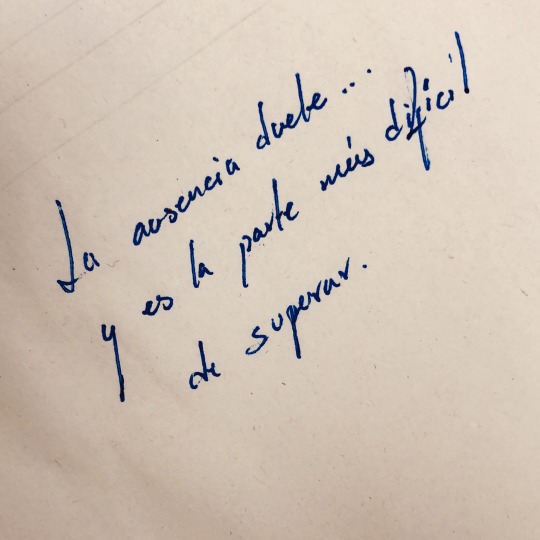 La ausencia duele...
y es la parte más difícil
de superar.